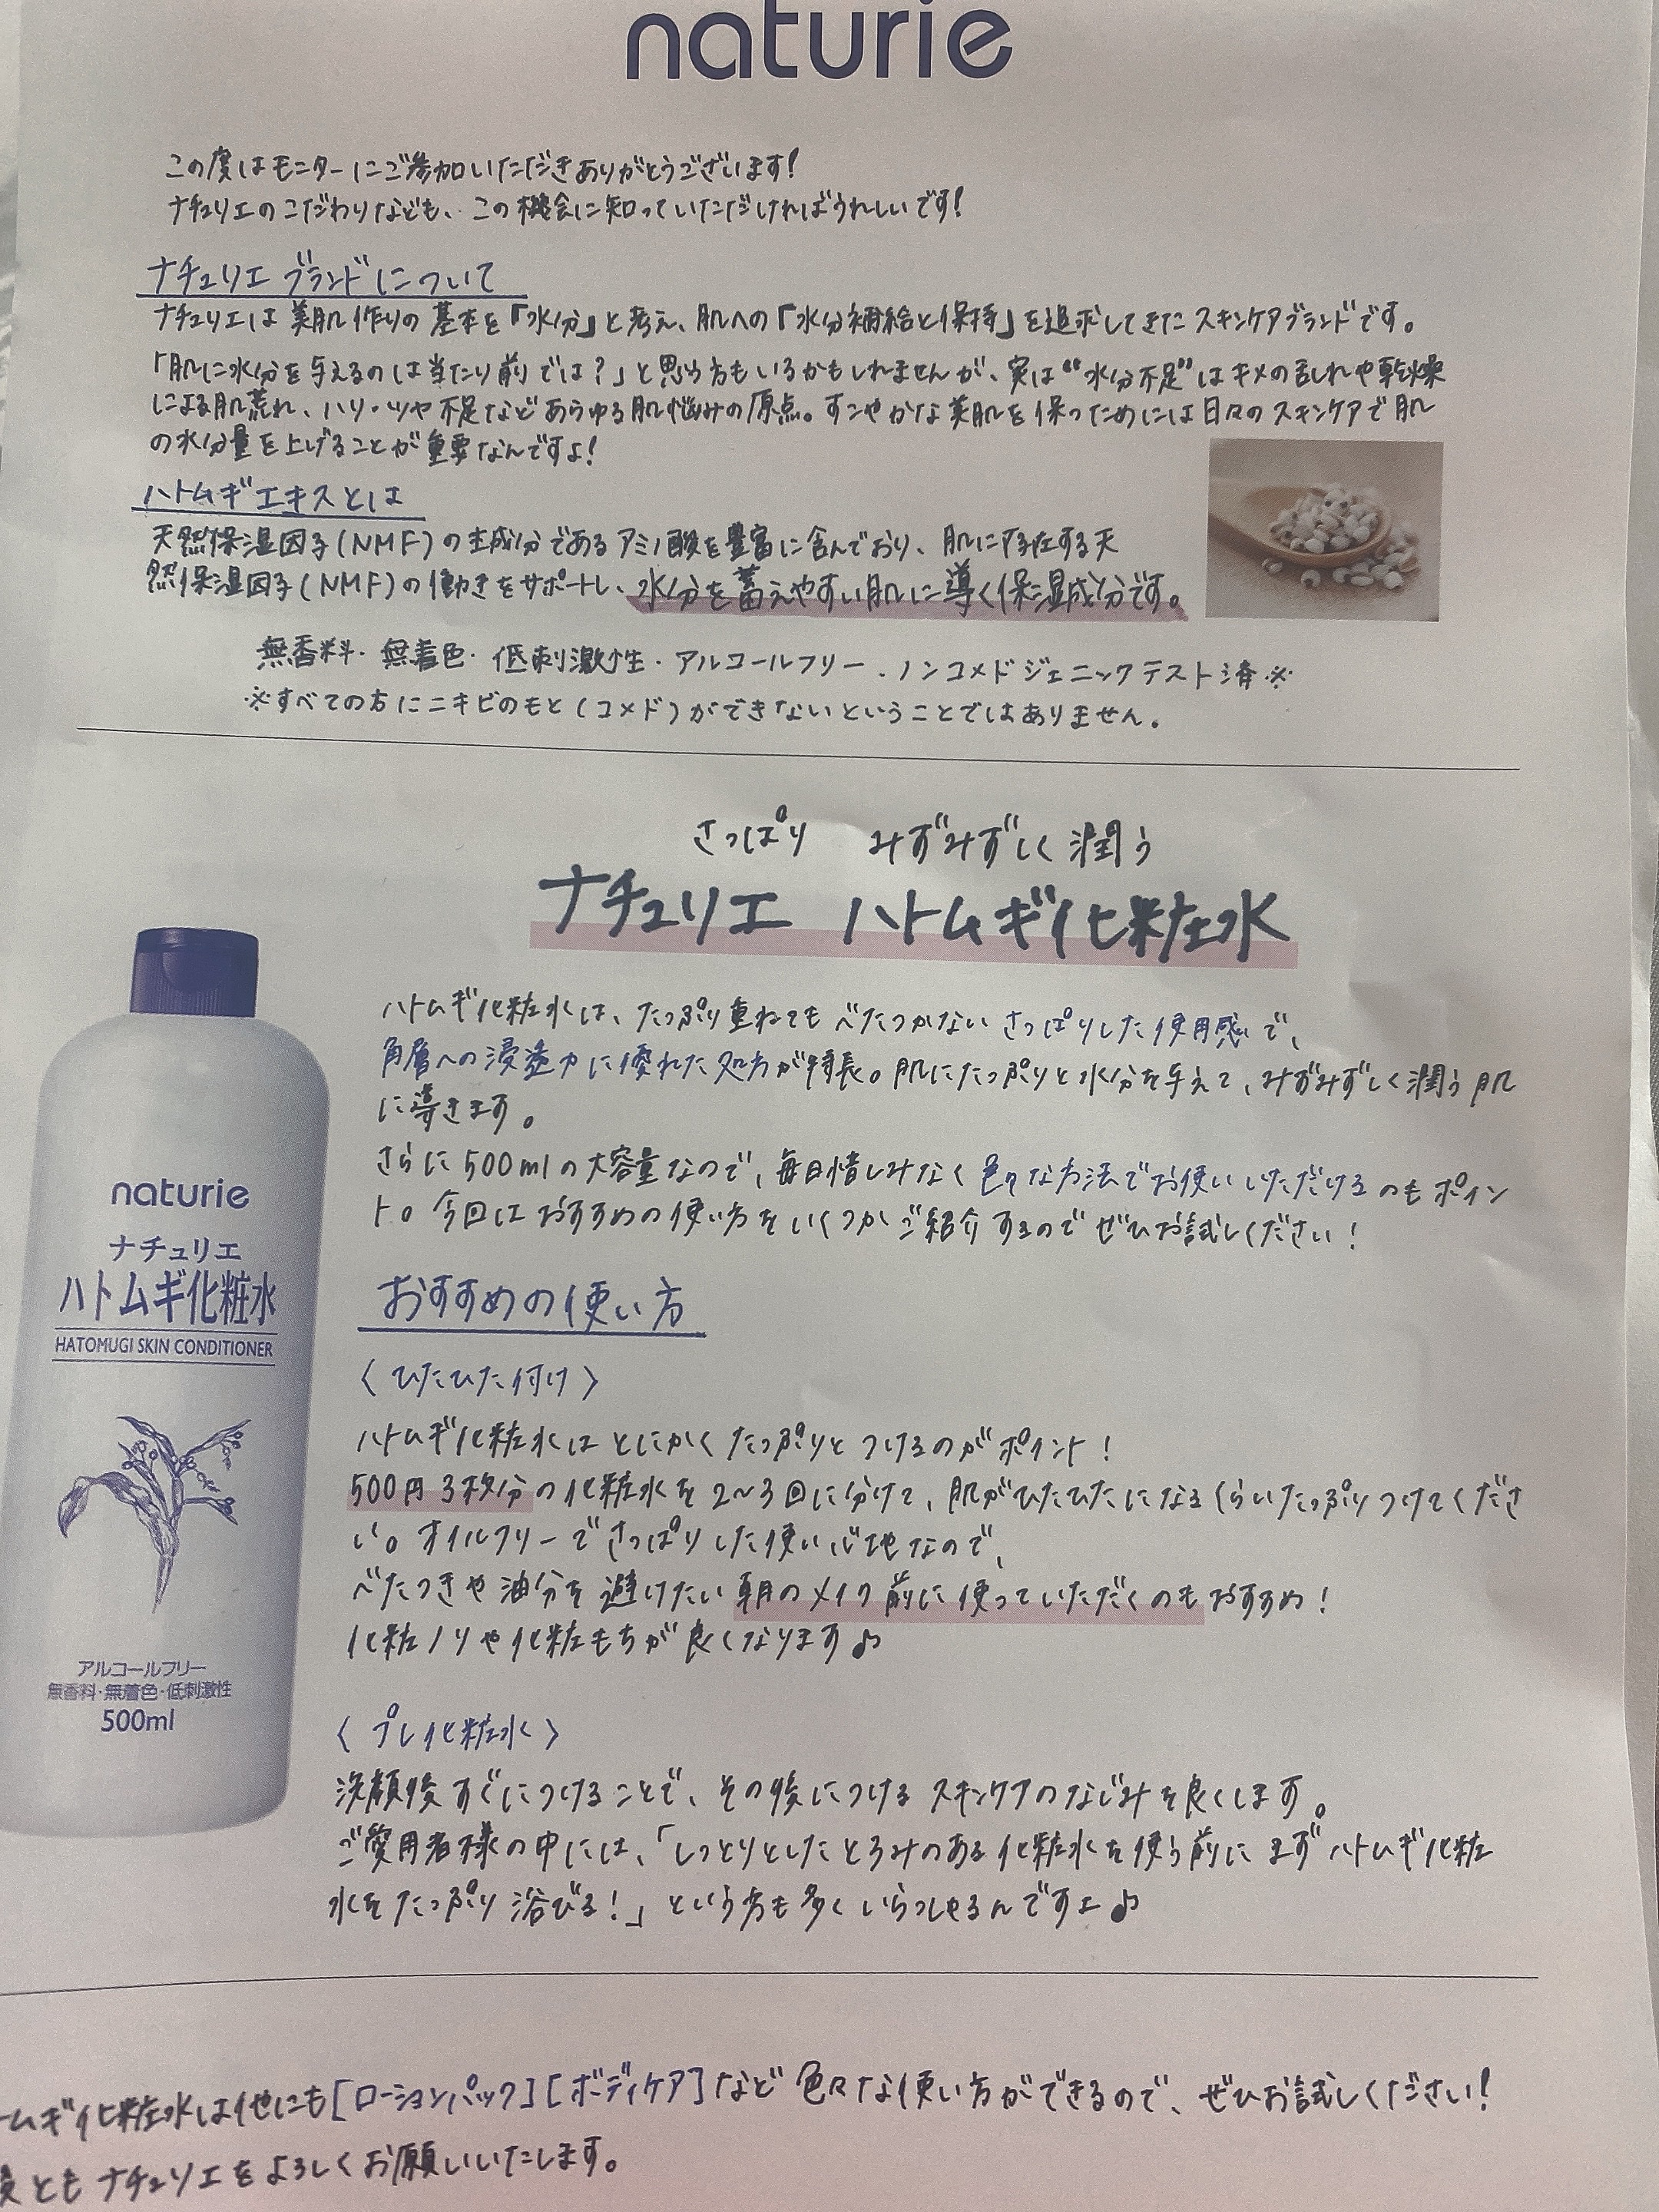 naturie
この度はモニターにご参加いただきありがとうございます!
ナチュリエのこだわりなども、この機会に知っていただければうれしいです!
ナチュリエ ブランドについて
ナチュリエは美肌作りの基本を「水分」と考え、肌への「水分補給と保持」を追求してきたスキンケアブランドです。
「肌に水分を与えるのは当たり前では?」と思う方もいるかもしれませんが、実は“水分不足”はキメの乱れや乾燥
による肌荒れ、ハリ・ツヤ不足などあらゆる肌悩みの原点。すこやかな美肌を保つためには日々のスキンケアで肌
の水分量を上げることが重要なんですよ!
ハトムギエキスとは
天然保湿因子(NMF)の主成分であるアミノ酸を豊富に含んでおり、肌に存在する天
然保湿因子(NMF)の働きをサポートし、水分を蓄えやすい肌に導く保湿成分です。
無香料・無着色・低刺激性・アルコールフリー・ノンコメドジェニックテスト済※
※すべての方にニキビのもと(コメド)ができないということではありません。
さっぱり みずみずしく潤う
ナチュリエ ハトムギ化粧水
ハトムギ化粧水は、たっぷり重ねてもべたつかないさっぱりした使用感で、
角層への浸透力に優れた処方が特長。肌にたっぷりと水分を与えて、みずみずしく潤う肌
に導きます。
さらに500mlの大容量なので、毎日惜しみなく色々な方法でお使いいただけるのもポイン
ト。今回はおすすめの使い方をいくつかご紹介するのでぜひお試しください!
おすすめの使い方
〈ひたひた付け〉
ハトムギ化粧水はとにかくたっぷりとつけるのがポイント!
500円3枚分の化粧水を2~3回に分けて、肌がひたひたになるくらいたっぷりつけてくださ
い。オイルフリーでさっぱりした使い心地なので、
べたつきや油分を避けたい朝のメイク前に使っていただくのもおすすめ!
化粧ノリや化粧もちが良くなります♪
〈プレ化粧水〉
洗顔後すぐにつけることで、その後につけるスキンケアのなじみを良くします。
ご愛用者様の中には、「しっとりとしたとろみのある化粧水を使う前にまずハトムギ化粧
水をたっぷり浴びる!」という方も多くいらっしゃるんですよ♪
naturie
ナチュリエ
ハトムギ化粧水
HATOMUGI SKIN CONDITIONER
アルコールフリー
無香料・無着色・低刺激性
500ml
ムギ化粧水は他にも[ローションパック][ボディケア]など色々な使い方ができるので、ぜひお試しください!
ともナチュリエをよろしくお願いいたします。